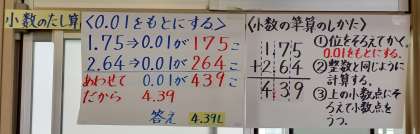 小数のたし算
<0.01をもとにする>
1.75⇒0.01が175こ
2.64⇒0.01が264こ
あわせて 0.01が439こ
だから 4.39
答え 4.39L
<小数の筆算のしかた>
1.75
+2.64
4.39
①位をそろえてかく。
0.01をもとにする。
②整数と同じように
計算する。
③上の小数点にそ
ろえて小数点を
うつ。